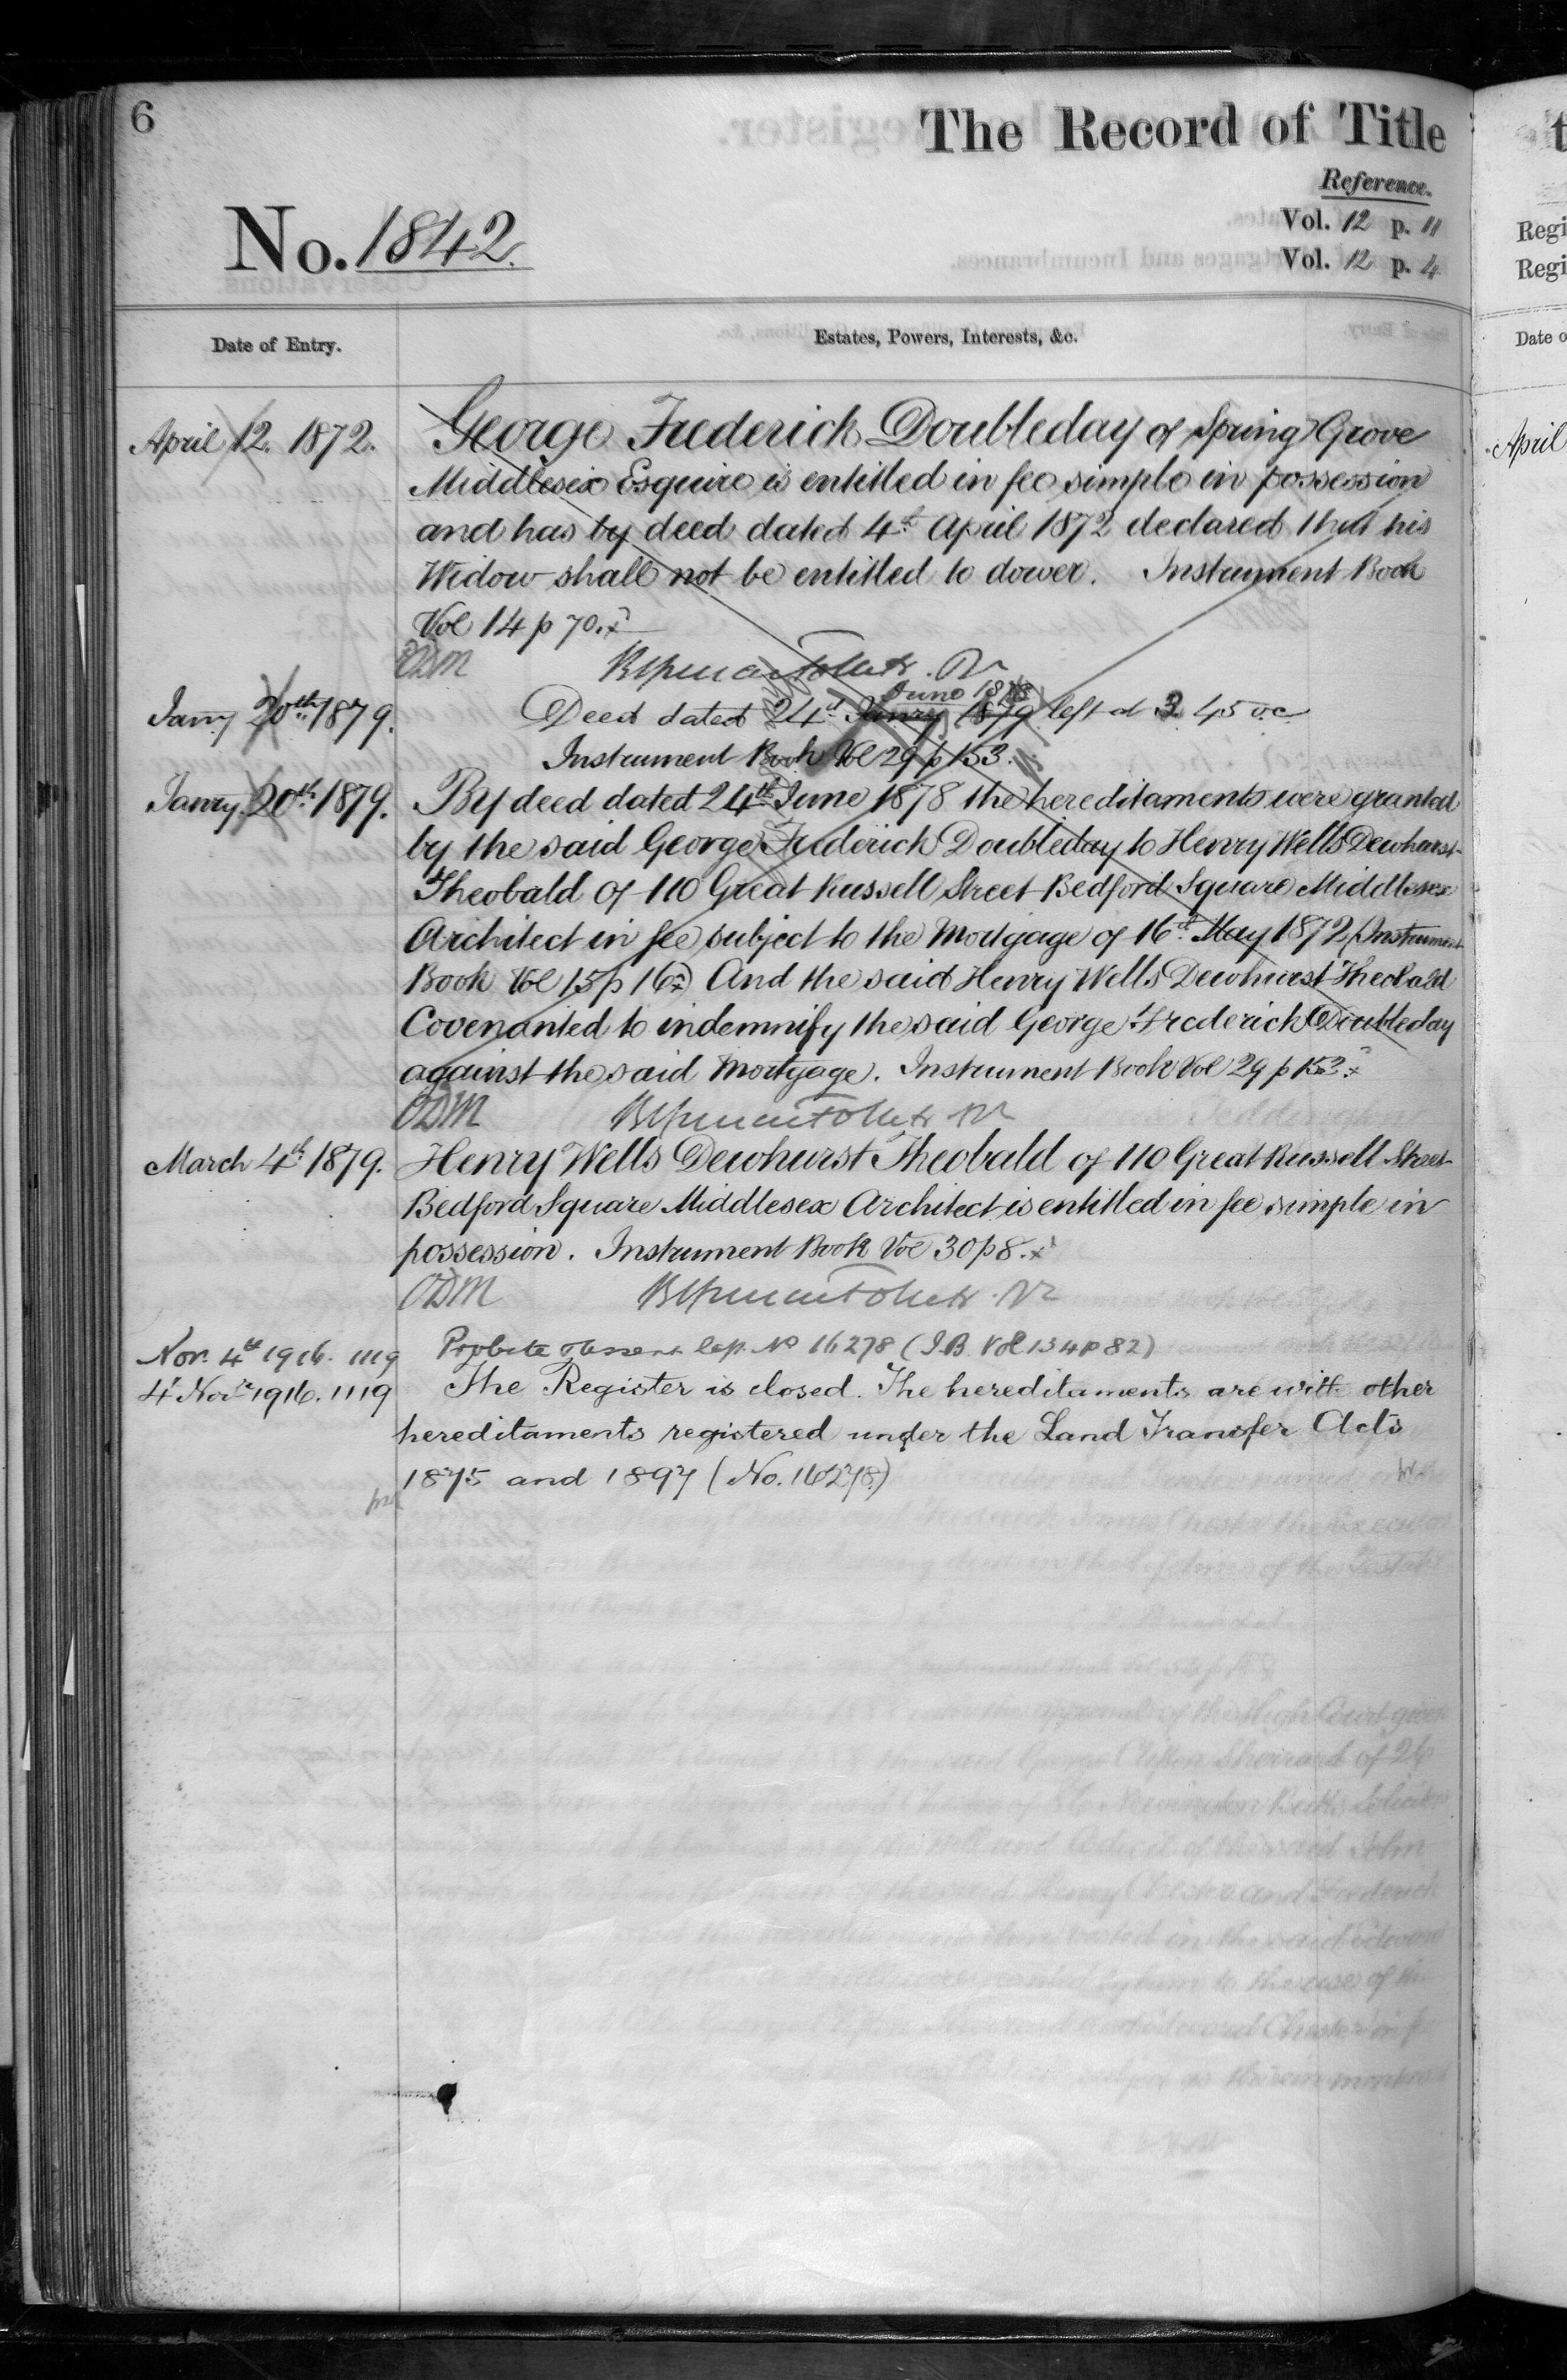 6
The Record of Title
Reference.
No. 1842.
Vol. 12 p. 11
Vol. 12 p. 4
Date of Entry.
Estates, Powers, Interests, &c.
April 12. 1872.
George Frederick Doubleday of Spring Grove
Middlesex Esquire is entitled in fee simple in possession
and has by deed dated 4th April 1872 declared that his
Widow shall not be entitled to dower. Instrument Book
Vol 14 p 70.
ODM
June 1878
Janry 20th 1879.
Deed dated 24th Janry 1879 left at 3.45
Instrument Book Vol 29 p 153.
Janry. 20th 1879.
By deed dated 24th June 1878 the hereditaments were granted
by the said George Frederick Doubleday to Henry Wells Dewhurst
Theobald of 110 Great Russell Street Bedford Square Middlesex
Architect in fee subject to the Mortgage of 16th May 1872 (Instrument
Book Vol 15 p 16) And the said Henry Wells Dewhurst Theobald
Covenanted to indemnify the said George Frederick Doubleday
against the said Mortgage. Instrument Book Vol 29 p 153.
ODM
March 4th 1879.
Henry Wells Dewhurst Theobald of 110 Great Russell Street
Bedford Square Middlesex Architect is entitled in fee simple in
possession. Instrument Book Vol 30 p 8.
ODM
Nov. 4th 1916. 1119
Probate No 16278 (I.B. Vol 134 P 82)
4 Novr 1916. 1119
The Register is closed. The hereditaments are with other
hereditaments registered under the Land Transfer Acts
1875 and 1897 (No. 16278.)
Regi
Regi
Date o
April